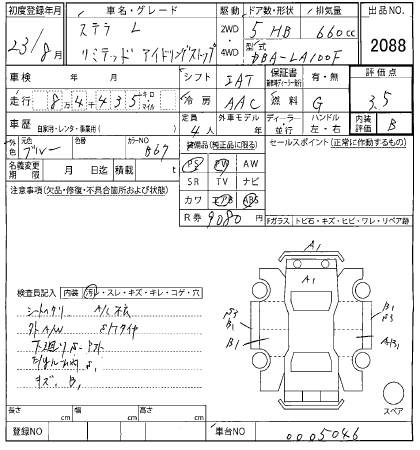 初度登録年月 車名・グレード 駆動 ドア数・形状 排気量 出品NO.
23/8月 ステラ L 2WD 5 HB 660cc 2088
リミテッド アイドリングストップ 4WD 型式 DBA-LA100F
車検 年 月 シフト IAT 保証書 有・無 評価点
走行 8万4千435 キロ マイル 冷房 AAC 燃料 G 3.5
車歴 自家用・レンタ・事業用( ) 定員 4人 外車モデル 年 ディーラー・並行 ハンドル 左・右 内装評価 B
外色 元色 ブルー 色替 カラーNO B67 装備品(純正品に限る) セールスポイント(正常に作動するもの)
PS PW AW
名義変更期限 月 日迄 積載 t SR TV ナビ
注意事項(欠品・修復・不具合箇所および状態) カワ エアB ABS
R券 9080円
Fガラス トビ石・キズ・ヒビ・ワレ・リペア跡
A1
A1
検査員記入 内装 汚レ・スレ・キズ・キレ・コゲ・穴
B1 B1
B1 A1B1
キズ、B1
スペア
長さ cm 幅 cm 高さ cm
登録NO 車台NO 0005046